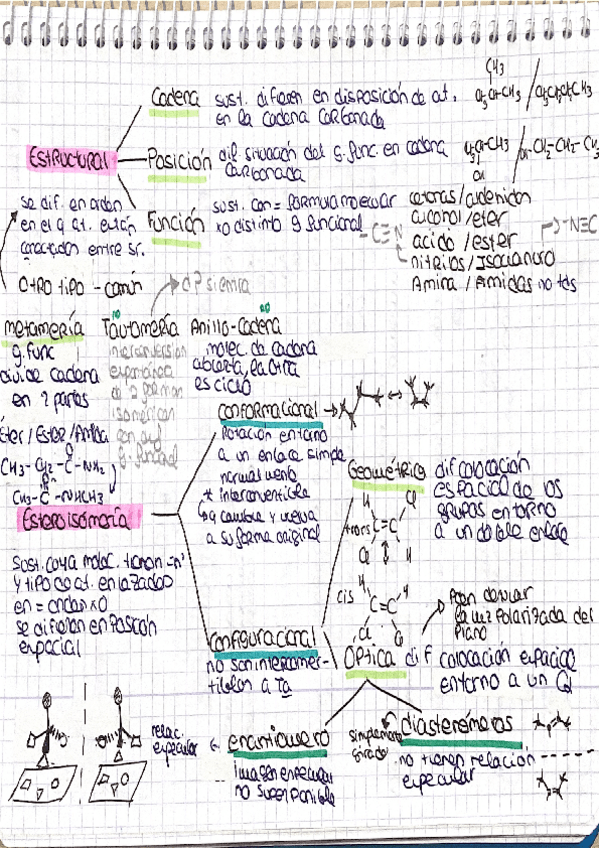 CH3
Cadena sust. difieren en disposición de at.
en la cadena carbonada
CH3CH-CH3 / CH3CH2CH2CH3
Estructural
Posición dif situación del g. func. en cadena
carbonada
CH3-CH-CH3 / OH-CH2-CH2-CH3
OH
se dif. en orden
en el q at. están
conectados entre sí.
Función sust. con = fórmula molecular
xo distinto g funcional
cetonas/aldehidos
alcohol/eter
acido/ester
nitrilos/Isocianuro
Amina/Amidas no tds
-C≡N
-N≡C
Otro tipo - común
metamería
g. func
divide cadena
en 2 partes
Éter/Ester/Amida
CH3-CH2-C-NH2
O
O
CH3-C-NHCH3
no
Tautomería
interconversión
espontánea
de 2 formas
isoméricas
con dif
g. funcional
no
Anillo-Cadena
molec. de cadena
abierta, la otra
es ciclo
Estereoisomería
sust. cuya molec. tienen = nº
y tipo de at. enlazados
en = orden xo
se difieren en Posición
espacial
conformacional
Rotación entorno
a un enlace simple
normalmente
+ interconvertible
cambie y vuelva
a su forma original
configuracional
no son interconver-
tibles a Ta
Geométrica dif colocación
espacial de los
grupos entorno
a un doble enlace
H Cl
trans C=C
Cl H
cis H H
C=C
Cl Cl
Óptica dif colocación espacial
entorno a un C
Pueden desviar
la luz Polarizada del
Plano
enantiomero
imagen especular
no superponible
relac.
especular
diasterómeros
simplemente
girado
no tienen relación
especular